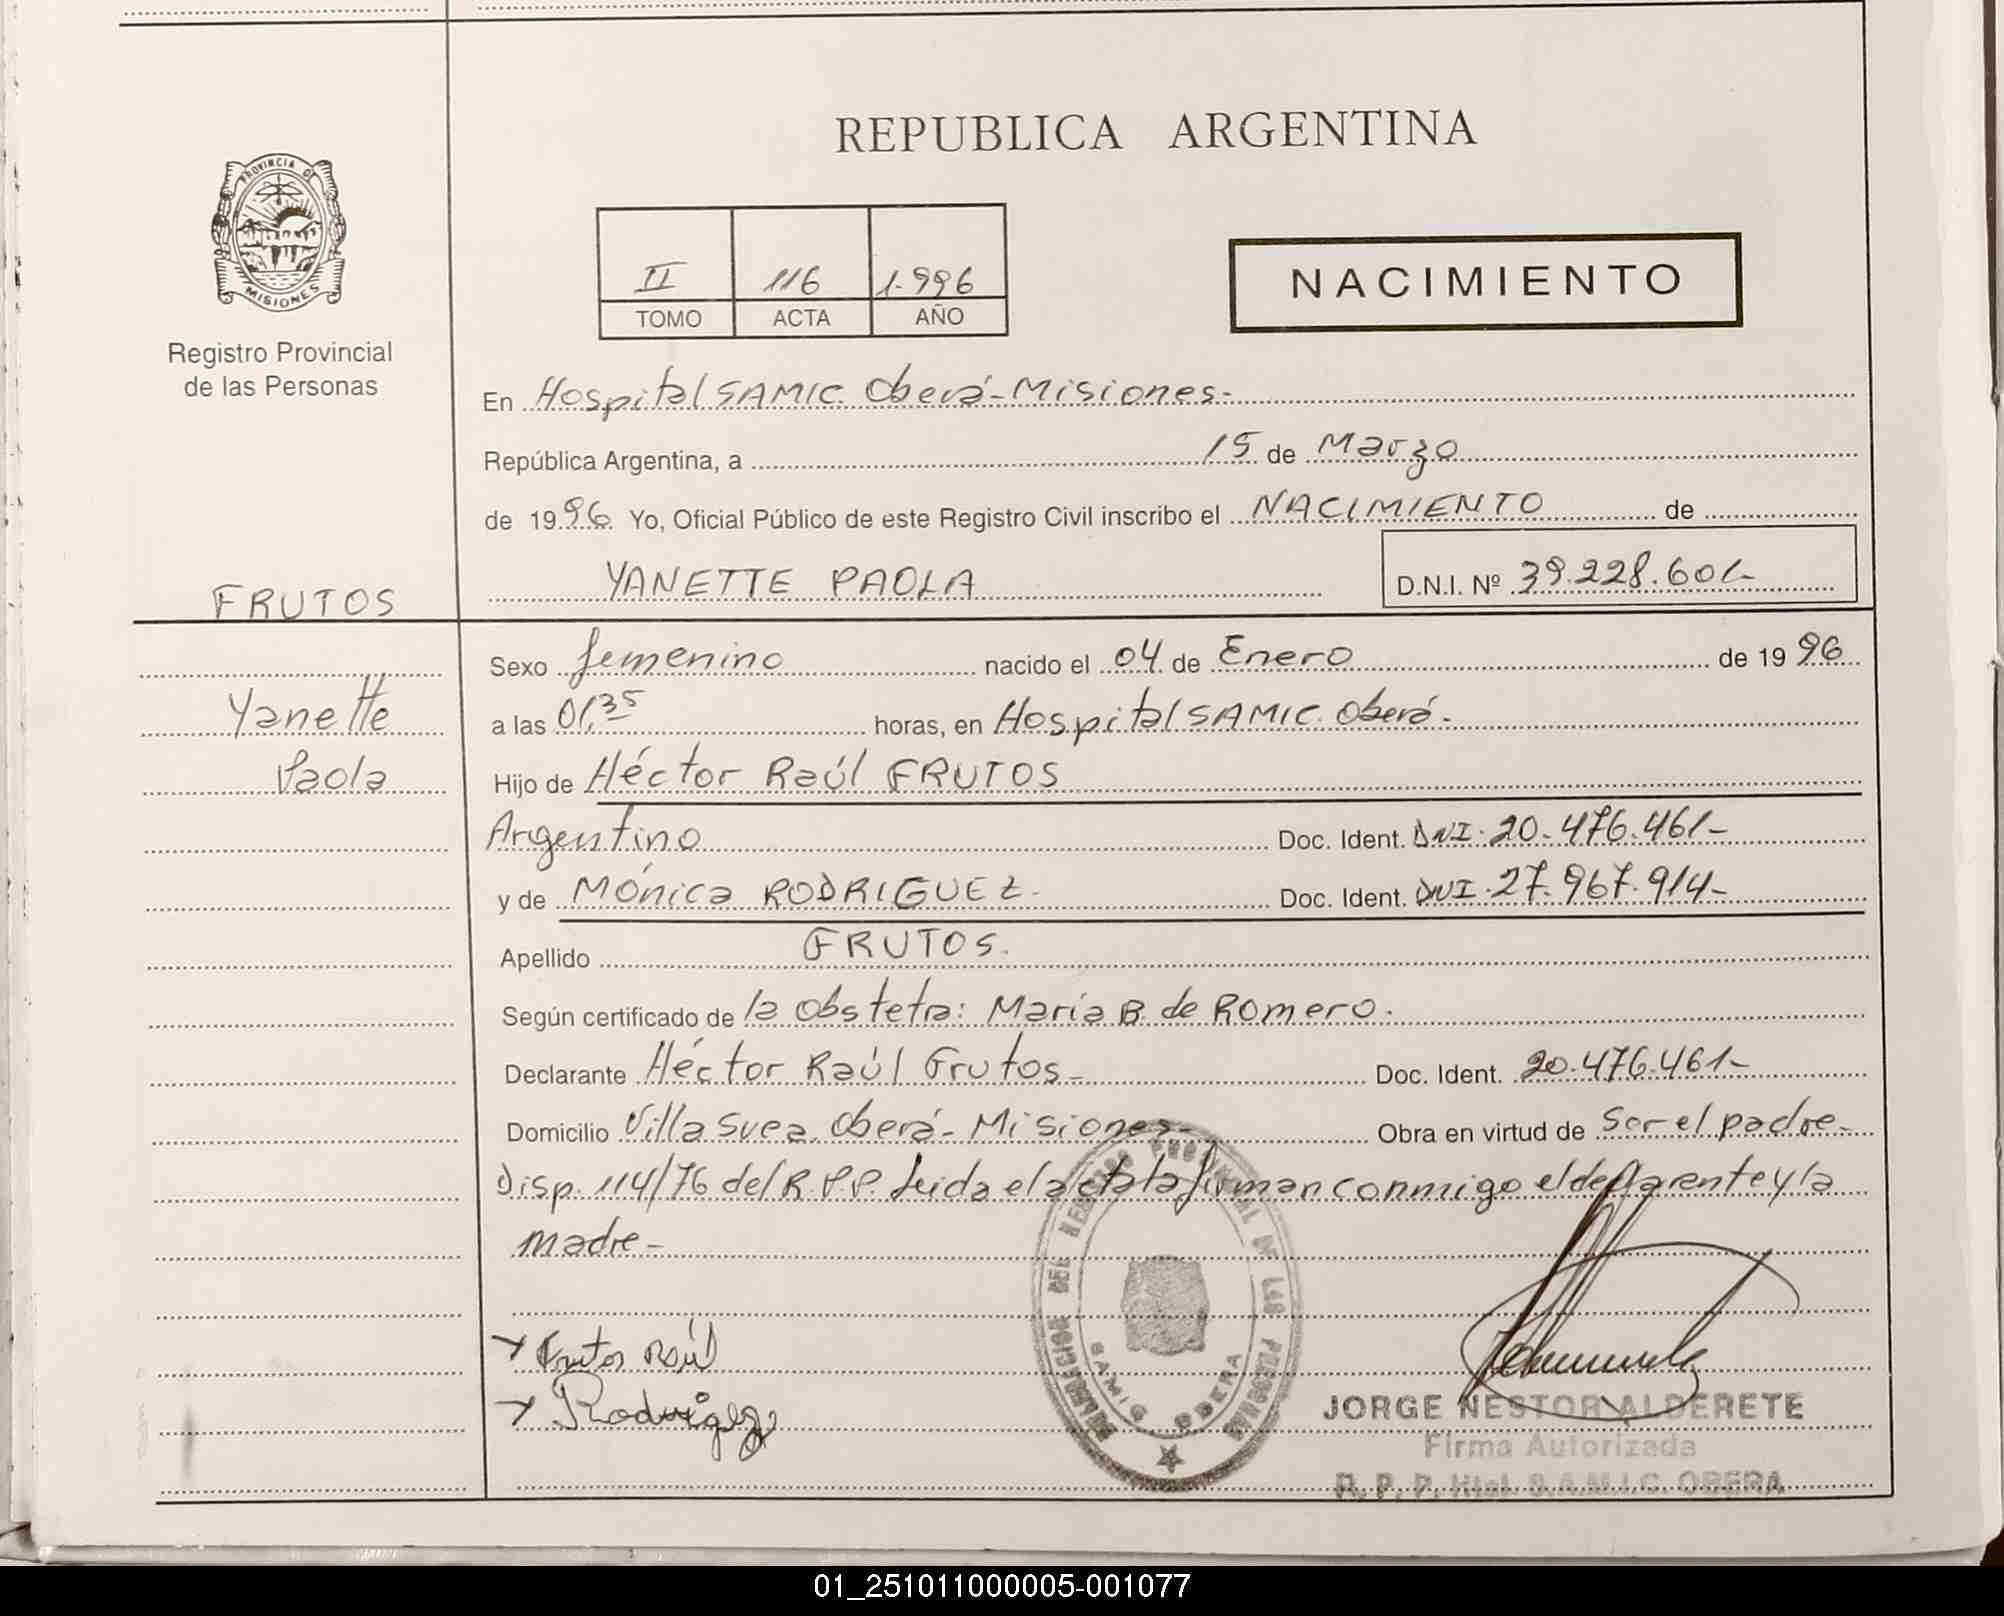 REPUBLICA ARGENTINA
PROVINCIA DE
MISIONES
Registro Provincial
de las Personas
II 116 1.996
TOMO ACTA AÑO
NACIMIENTO
En Hospital SAMIC. Oberá-Misiones-
República Argentina, a 15 de Marzo
de 1996 Yo, Oficial Público de este Registro Civil inscribo el NACIMIENTO de
FRUTOS
YANETTE PAOLA D.N.I. Nº 39.228.601-
Yanette
Paola
Sexo femenino nacido el 04 de Enero de 1996
a las 01,35 horas, en Hospital SAMIC. Oberá-
Hijo de Héctor Raúl FRUTOS
Argentino Doc. Ident. DNI. 20.476.461-
y de Mónica RODRIGUEZ- Doc. Ident. DNI. 27.967.914-
Apellido FRUTOS.
Según certificado de la obstetra: María B. de Romero.
Declarante Héctor Raúl Frutos- Doc. Ident. 20.476.461-
Domicilio Villa Svea. Oberá- Misiones- Obra en virtud de ser el padre-
Disp. 114/76 del R.P.P. Leida el acta la firman conmigo el declarante y la
madre-
DEL REGISTRO PROVINCIAL DE LAS PERSONAS
SAMIC OBERA
Frutos Raúl
Rodriguez
JORGE NESTOR ALDERETE
Firma Autorizada
R. P. P. Htal. S.A.M.I.C. OBERA
01_251011000005-001077